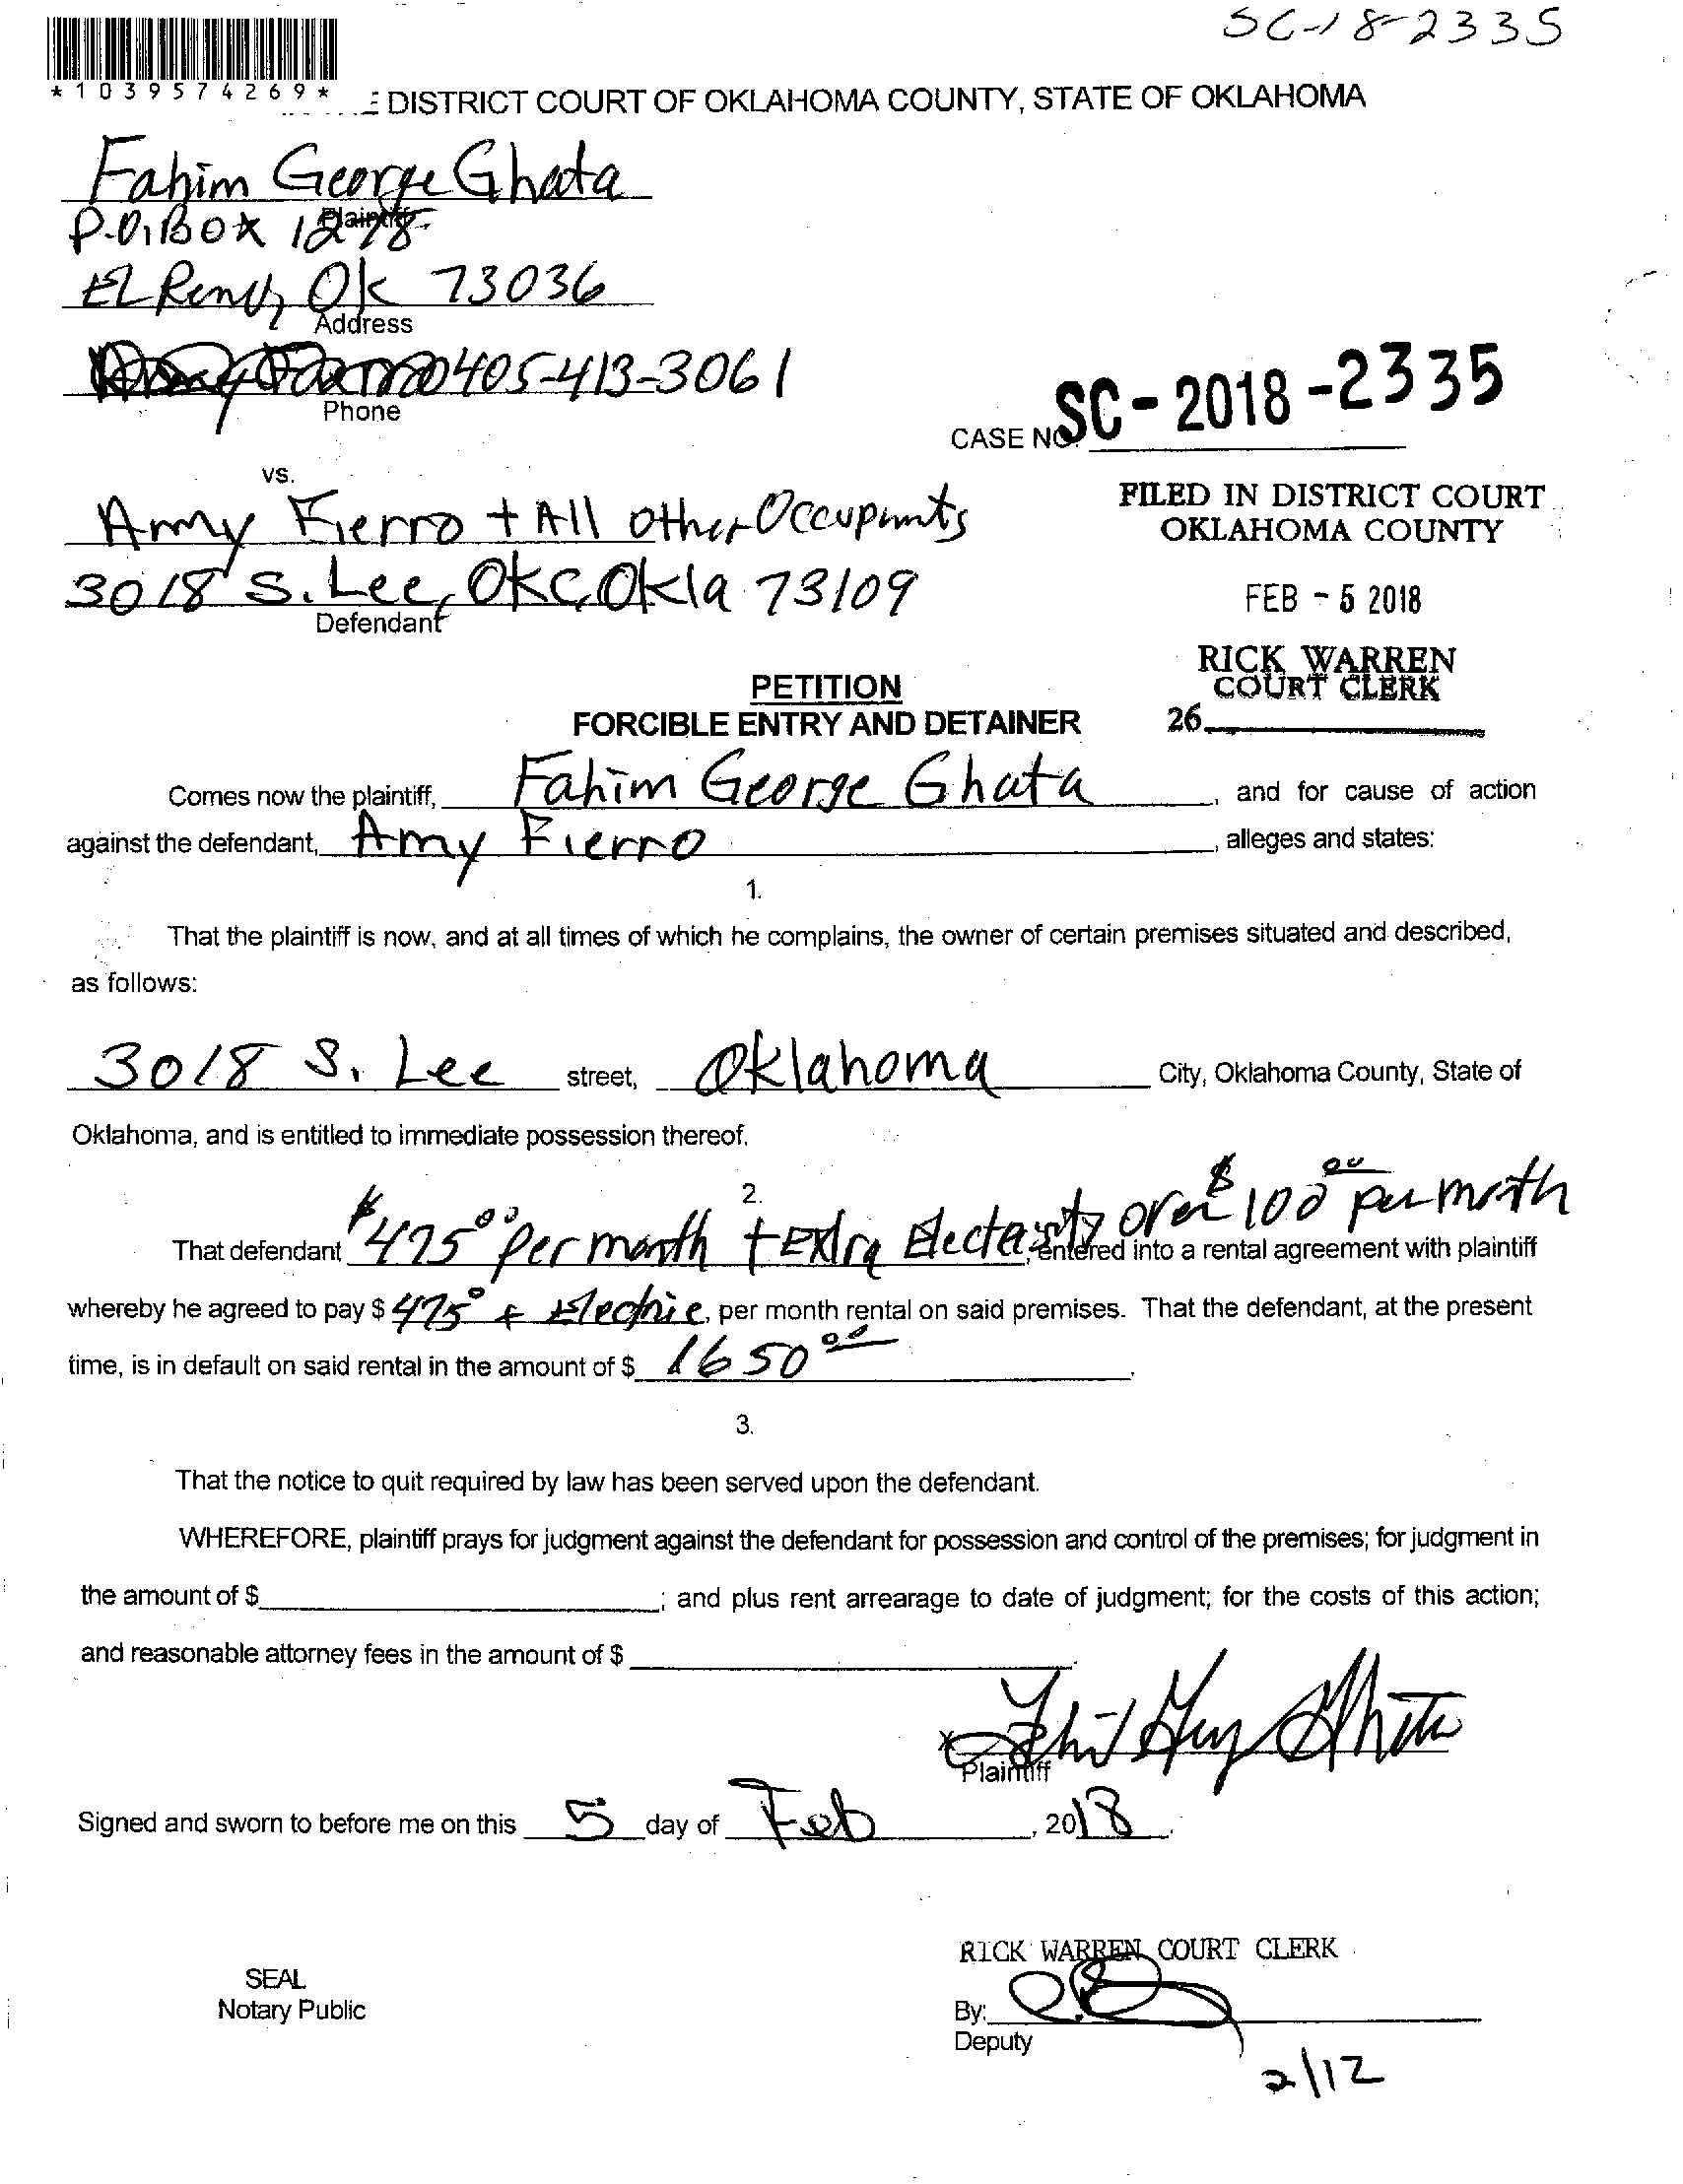 SC-18-2335
*1039574269*
DISTRICT COURT OF OKLAHOMA COUNTY, STATE OF OKLAHOMA
Fahim George Ghata
Plaintiff
P.O. Box 1278
EL Reno, Ok 73036
Address
405-413-3061
Phone
CASE NO. SC-2018-2335
vs.
Amy Fierro + All other Occupants
3018 S. Lee, OKC, Okla 73109
Defendant
FILED IN DISTRICT COURT
OKLAHOMA COUNTY
FEB - 5 2018
RICK WARREN
COURT CLERK
26
PETITION
FORCIBLE ENTRY AND DETAINER
Comes now the plaintiff, Fahim George Ghata, and for cause of action
against the defendant, Amy Fierro, alleges and states:
1.
That the plaintiff is now, and at all times of which he complains, the owner of certain premises situated and described,
as follows:
3018 S. Lee street, Oklahoma City, Oklahoma County, State of
Oklahoma, and is entitled to immediate possession thereof.
2.
That defendant $475⁰⁰ per month + Extra over $100⁰⁰ per month, entered into a rental agreement with plaintiff
whereby he agreed to pay $ 475⁰ + Electric, per month rental on said premises. That the defendant, at the present
time, is in default on said rental in the amount of $ 1650⁰⁰.
3.
That the notice to quit required by law has been served upon the defendant.
WHEREFORE, plaintiff prays for judgment against the defendant for possession and control of the premises; for judgment in
the amount of $; and plus rent arrearage to date of judgment; for the costs of this action;
and reasonable attorney fees in the amount of $.
x
Plaintiff
Signed and sworn to before me on this 5 day of Feb, 2018.
RICK WARREN COURT CLERK
SEAL
Notary Public
By:
Deputy
2/12